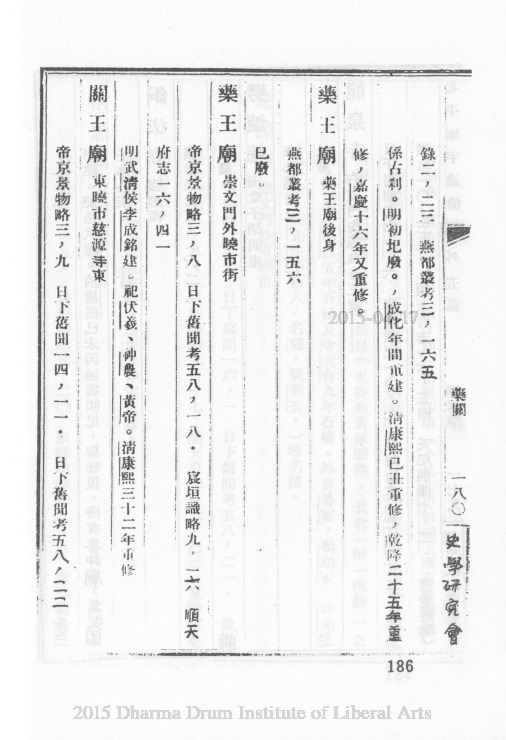 錄二，二三　燕都叢考三，一六五
係古刹。明初圮廢。，成化年間重建。清康熙己丑重修，乾隆二十五年重
修，嘉慶十六年又重修。
藥王廟　藥王廟後身
燕都叢考三，一五六
已廢。
藥王廟　崇文門外曉市街
帝京景物略三，八　日下舊聞考五八，一八．　宸垣識略九，一六　順天
府志一六，四一
明武清侯李成銘建。祀伏羲、神農、黃帝。清康熙三十二年重修
關王廟　東曉市慈源寺東
帝京景物略三，九　日下舊聞一四，一一．　日下舊聞考五八，二二
藥關　一八〇
史學研究會
186
2015-04-17
2015 Dharma Drum Institute of Liberal Arts